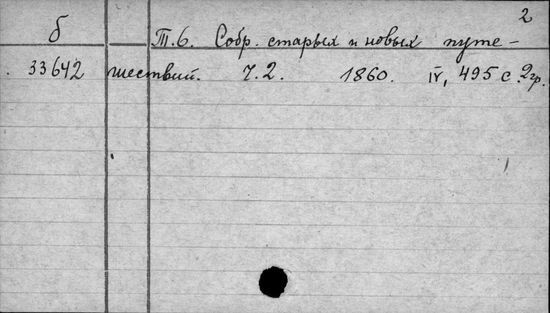 2
б Т.6. Собр. старых и новых путе-
33642 шествий. Ч.2. 1860. IV, 495 с. 2гр.